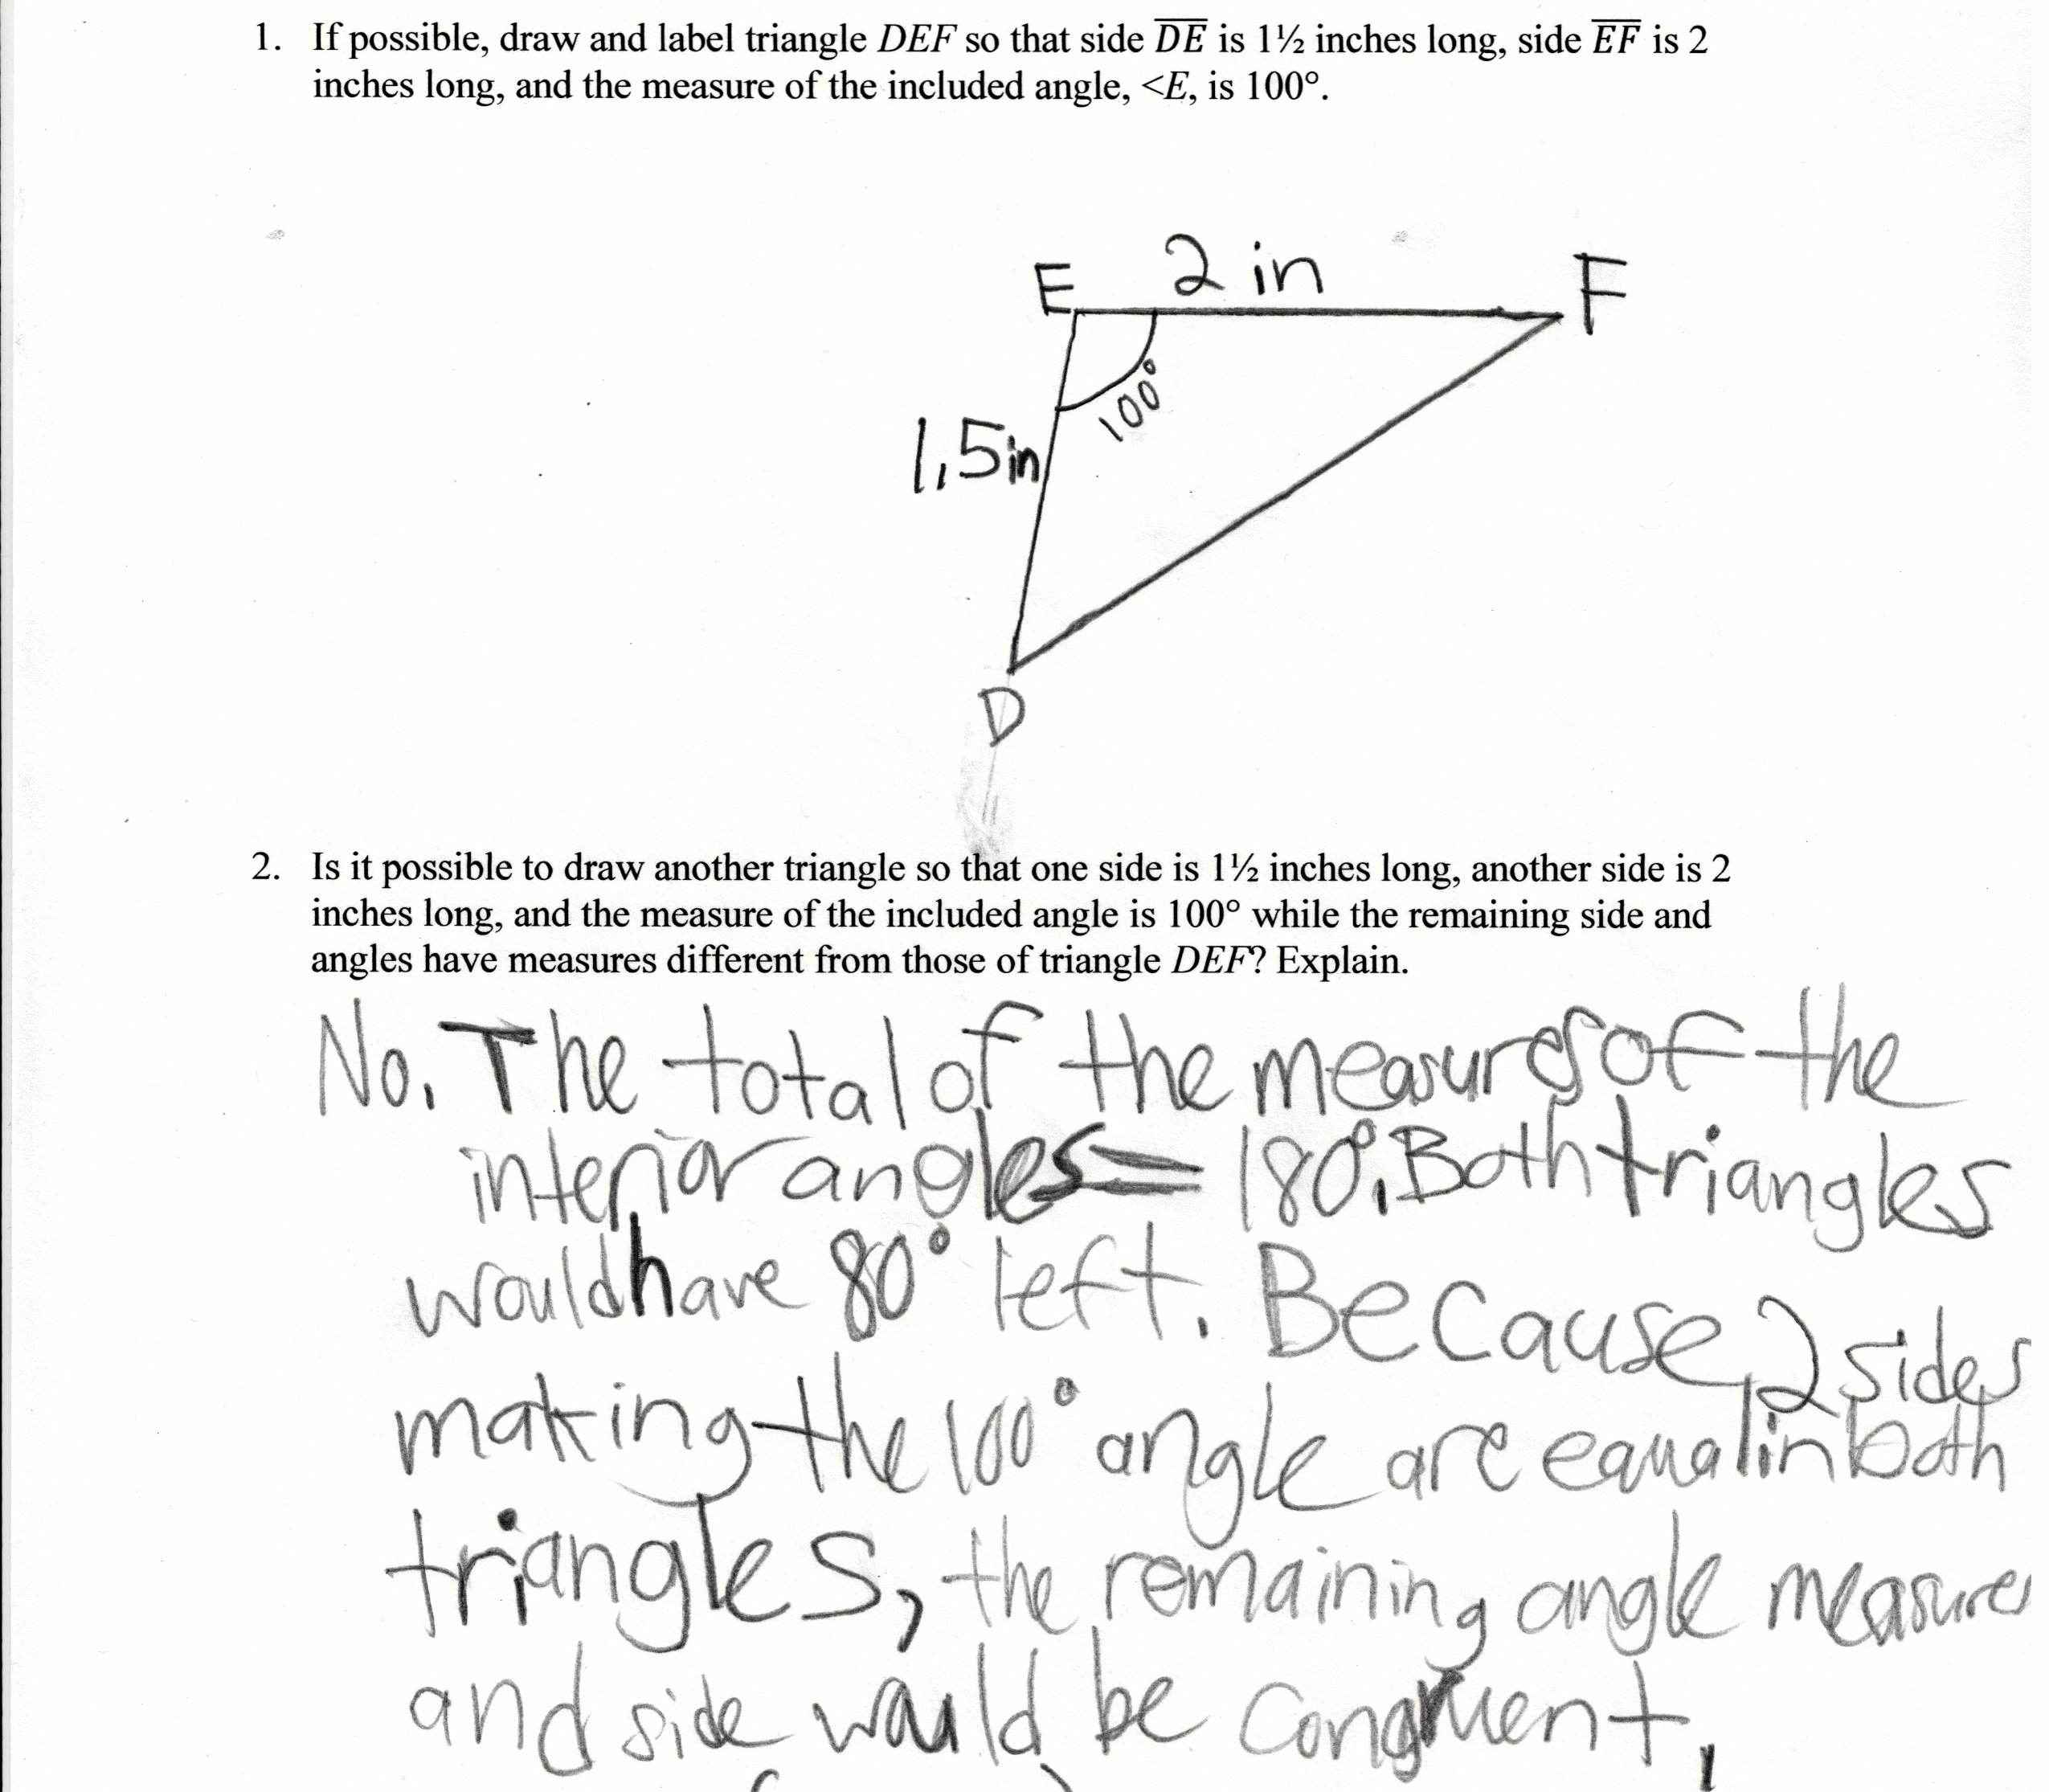 1. If possible, draw and label triangle DEF so that side DE is 1½ inches long, side EF is 2
inches long, and the measure of the included angle, <E, is 100°.
E 2 in F
100°
1.5in
D
2. Is it possible to draw another triangle so that one side is 1½ inches long, another side is 2
inches long, and the measure of the included angle is 100° while the remaining side and
angles have measures different from those of triangle DEF? Explain.
No. The total of the measures of the
interior angles = 180°. Both triangles
would have 80° left. Because 2 sides
making the 100° angle are equal in both
triangles, the remaining angle measures
and side would be congruent.